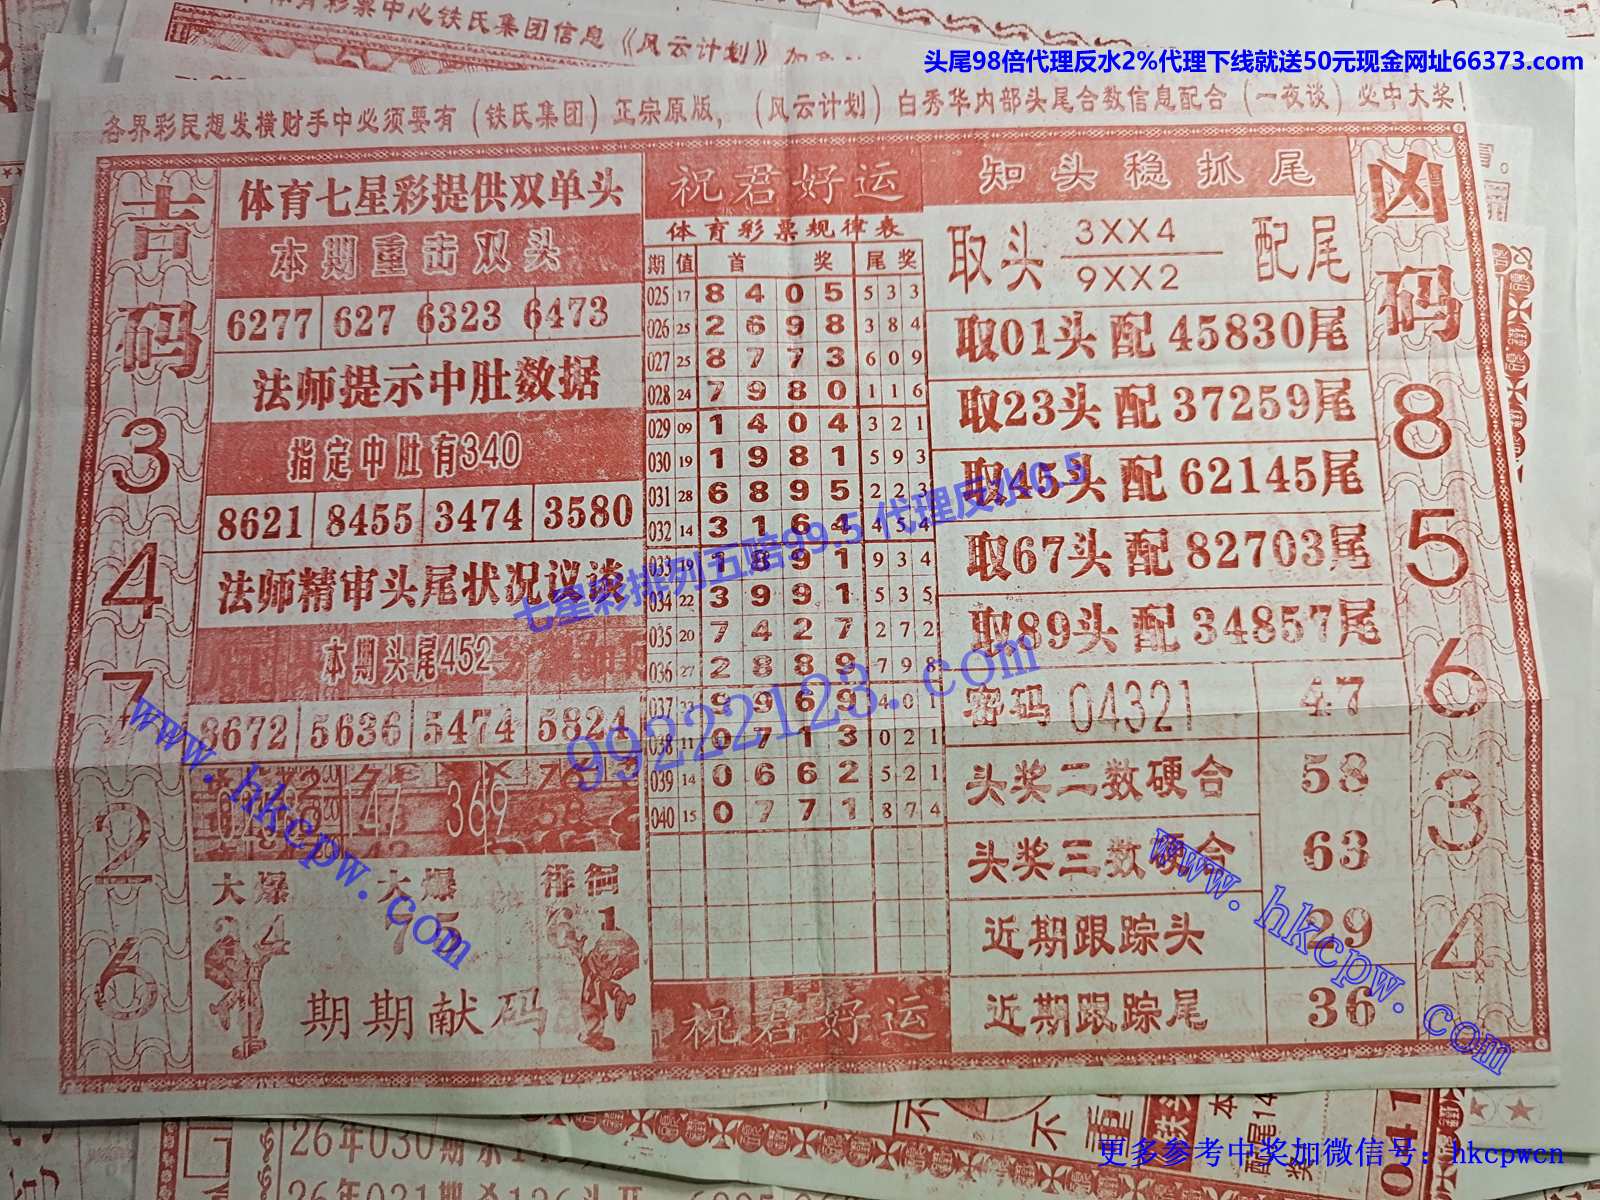 体育彩票中心铁氏集团信息《风云计划》
头尾98倍代理反水2%代理下线就送50元现金网址66373.com
各界彩民想发横财手中必须要有(铁氏集团)正宗原版,(风云计划)白秀华内部头尾合数信息配合(一夜谈)必中大奖!
吉码
3
4
7
2
6
体育七星彩提供双单头
本期重击双头
6277 627 6323 6473
法师提示中肚数据
指定中肚有340
8621 8455 3474 3580
法师精审头尾状况议谈
本期头尾452
8672 5636 5474 5824
147 369
大爆 大爆 徘徊
24 75 61
期期献码
祝君好运
体育彩票规律表
期 值 首 奖 尾 奖
025 17 8 4 0 5 5 3 3
026 25 2 6 9 8 3 8 4
027 25 8 7 7 3 6 0 9
028 24 7 9 8 0 1 1 6
029 09 1 4 0 4 3 2 1
030 19 1 9 8 1 5 9 3
031 28 6 8 9 5 2 2 3
032 14 3 1 6 4 4 5 4
033 19 1 8 9 1 9 3 4
034 22 3 9 9 1 5 3 5
035 20 7 4 2 7 2 7 2
036 27 2 8 8 9 7 9 8
037 33 9 9 6 9 4 0 1
038 11 0 7 1 3 0 2 1
039 14 0 6 6 2 5 2 1
040 15 0 7 7 1 8 7 4
祝君好运
知头稳抓尾
取头 3XX4 配尾
9XX2
取01头 配 45830尾
取23头 配 37259尾
取45头 配 62145尾
取67头 配 82703尾
取89头 配 34857尾
密码 04321 47
头奖二数硬合 58
头奖三数硬合 63
近期跟踪头 29
近期跟踪尾 36
凶码
8
5
6
3
4
七星彩排列五赔99.5 代理反水0.5
99222123.com
www.hkcpw.com
www.hkcpw.com
26年030期杀
26年031期杀
更多参考中奖加微信号：hkcpwcn